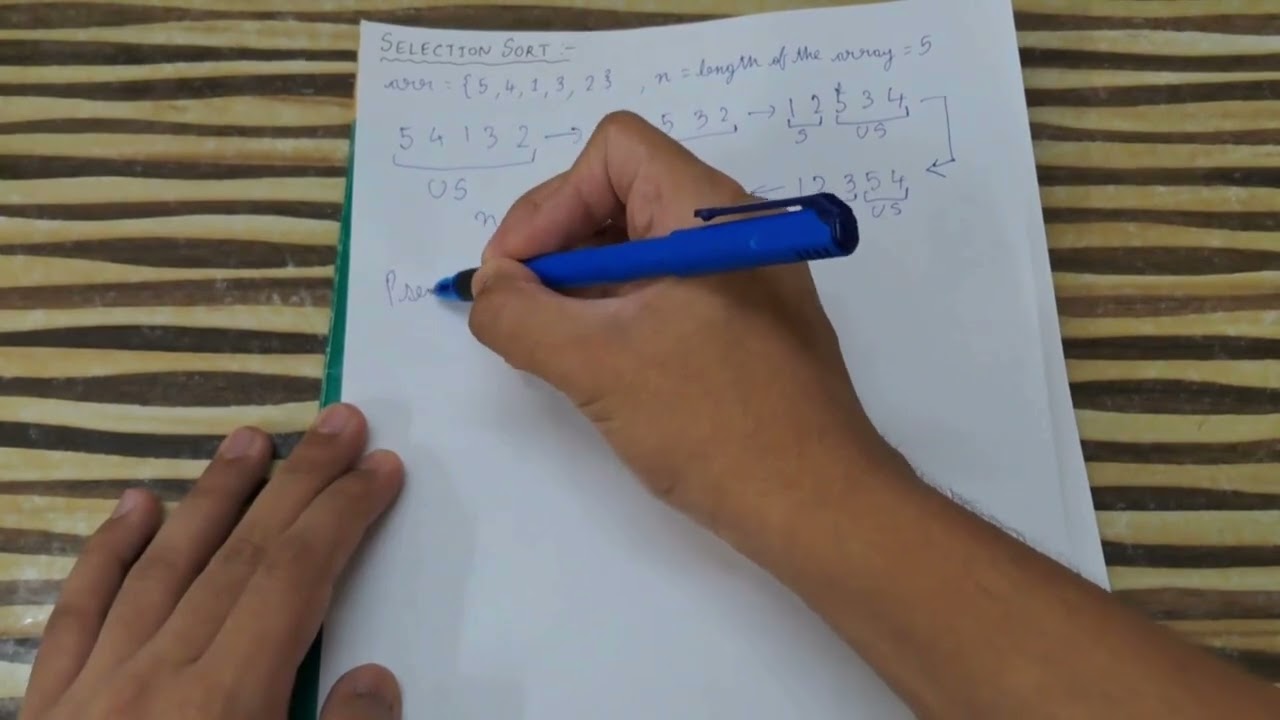 SELECTION SORT :-
arr = {5, 4, 1, 3, 2} , n = length of the array = 5
5 4 1 3 2 → 5 3 2 → 1 2 5 3 4
US S US
← 1 2 3 5 4
US
n
Pse